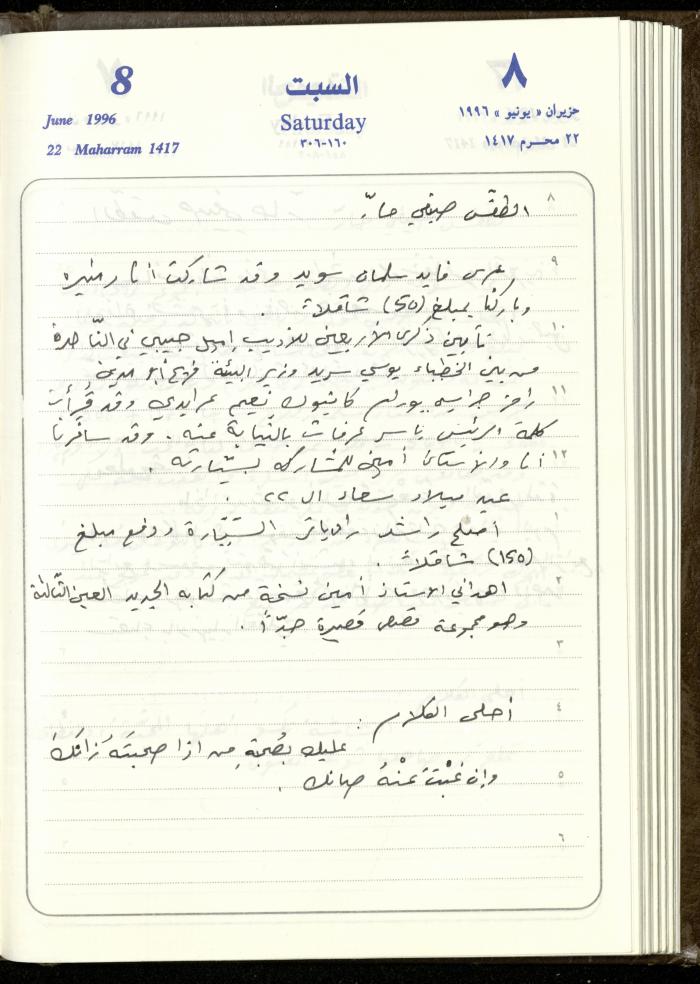 8
السبت
٨
June 1996
Saturday
حزيران « يونيو » ١٩٩٦
22 Maharram 1417
٣٠٦-١٦٠
٢٢ محرم ١٤١٧
٨
الطقس صيفي حارّ
٩
عرس فايد سلمان سويد وقد شاركت أنا ومنيره
وباركنا بمبلغ (١٥٠) شاقلاً .
١٠
تأبين ذكرى الأربعين للأديب إميل حبيبي في النّاصرة
من بين الخطباء يوسي سريد وزير البيئة فريح أبو مدين
١١
رامز جرايسي يورام كانيوك نعيم عرايدي وقد قُرأت
كلمة الرئيس ياسر عرفات بالنّيابة عنه . وقد سافرنا
١٢
أنا والأستاذ أمين للمشاركة بسيّارته .
عيد ميلاد سعاد ال ٢٢ .
١
أصلح راشد السّيّارة ودفع مبلغ
(١٥٠) شاقلاً .
٢
اهداني الاستاذ أمين نسخة من كتابه الجديد العين الثّالثة
وهو مجموعة قصص قصيرة جدّاً .
٣
٤
أحلى الكلام :
عليك بصُحبَةِ مِن اذا صحبتَهُ زانَكَ
٥
وإن غبْتَ عَنْهُ صانك .
٦